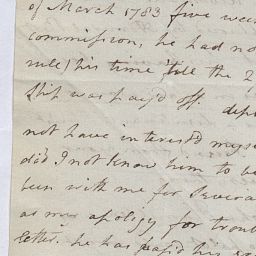 of March 1783 five wee
commission, he had no
rule) his time 'till the 2
Ship was paid off. dep
not have interest'd mys
did I not know him to be
been with me for Severa
as my apology for trou
letter. he has pass'd his